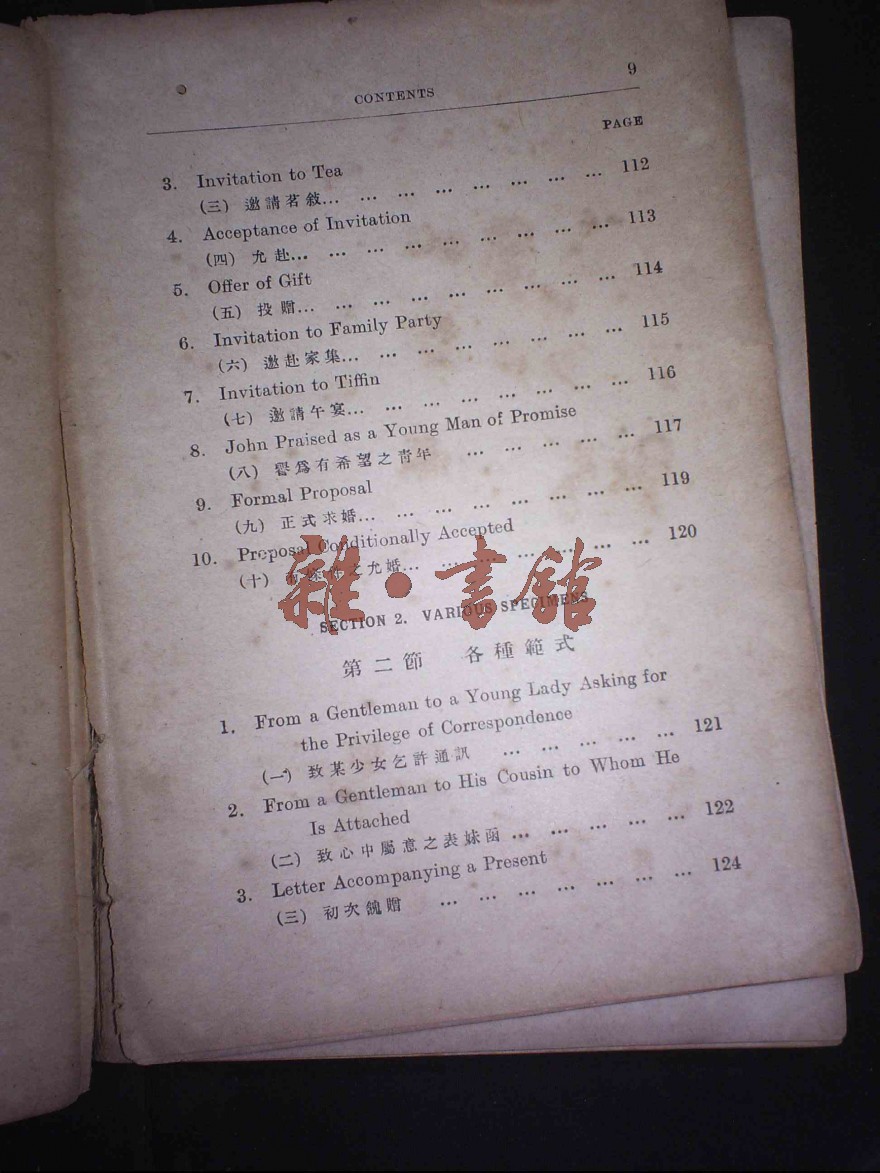 CONTENTS 9
PAGE
3. Invitation to Tea
(三) 邀請茗敍... ... ... ... ... ... ... ... 112
4. Acceptance of Invitation
(四) 允赴... ... ... ... ... ... ... ... ... 113
5. Offer of Gift
(五) 投贈... ... ... ... ... ... ... ... ... 114
6. Invitation to Family Party
(六) 邀赴家集... ... ... ... ... ... ... ... 115
7. Invitation to Tiffin
(七) 邀請午宴... ... ... ... ... ... ... ... 116
8. John Praised as a Young Man of Promise
(八) 譽爲有希望之青年 ... ... ... ... ... 117
9. Formal Proposal
(九) 正式求婚... ... ... ... ... ... ... ... 119
10. Proposal Conditionally Accepted
(十) 之允婚... ... ... ... ... ... ... 120
雜·書館
SECTION 2. VARIOUS SPECIMENS
第二節 各種範式
1. From a Gentleman to a Young Lady Asking for
the Privilege of Correspondence
(一) 致某少女乞許通訊 ... ... ... ... ... 121
2. From a Gentleman to His Cousin to Whom He
Is Attached
(二) 致心中屬意之表妹函 ... ... ... ... ... 122
3. Letter Accompanying a Present
(三) 初次餽贈 ... ... ... ... ... ... ... 124